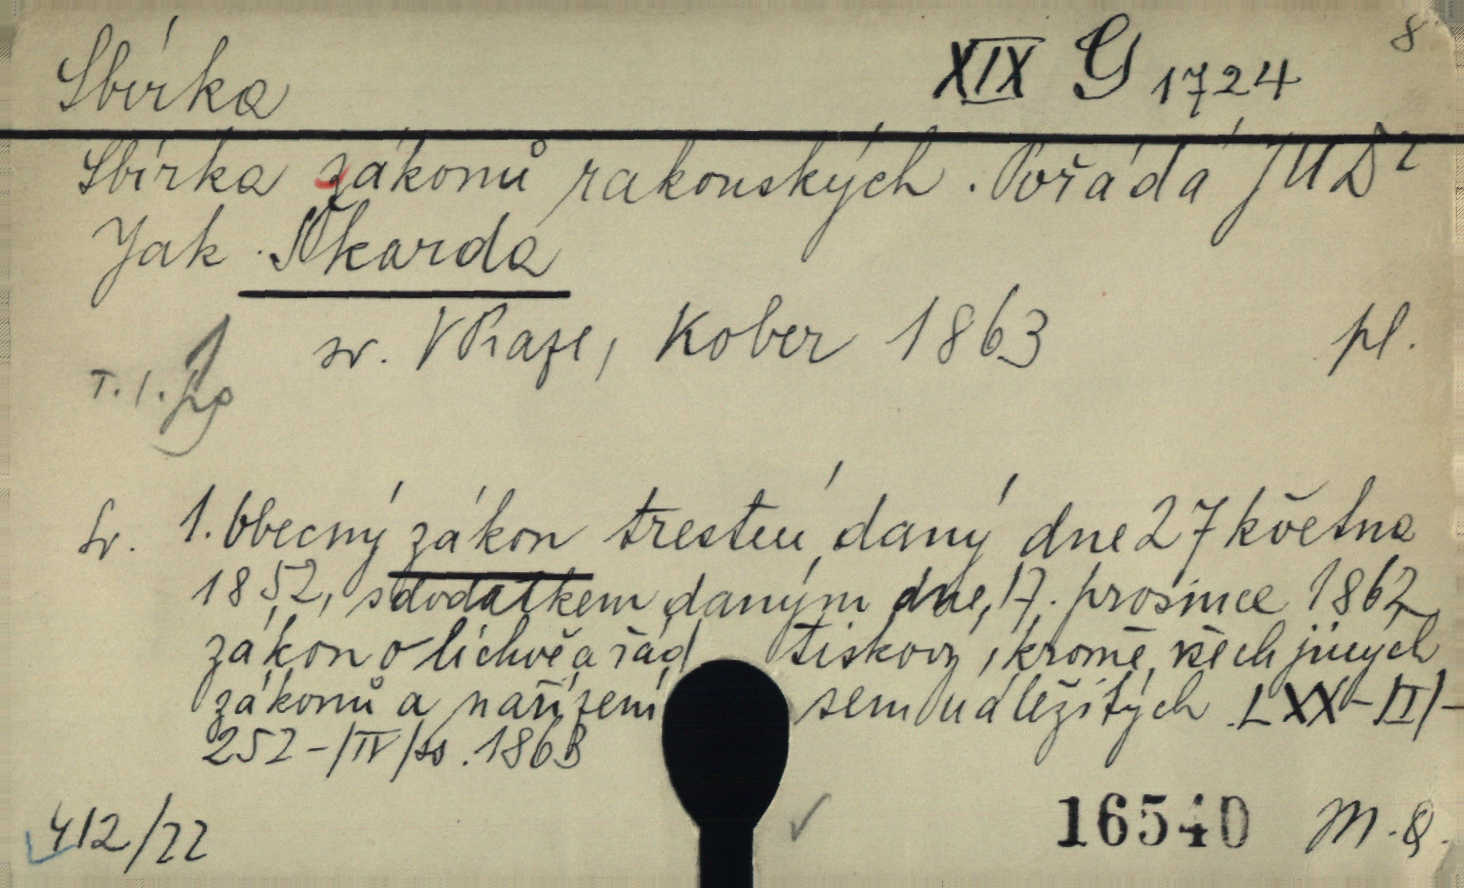 Sbírka XIX G 1724 8
Sbírka zákonů rakouských. Pořádá JUDr
Jak. Škarda
sv. V Praze, Kober 1863 pl.
T. I.
Sv. 1. Obecný zákon trestní, daný dne 27 května
1852, s dodatkem daným dne 17. prosince 1862,
zákon o lichvě a řád tiskový, kromě všech jiných
zákonů a nařízení sem náležitých. LXX-/II/-
252-/IV/ss. 1863
412/22 16540 M.Q.